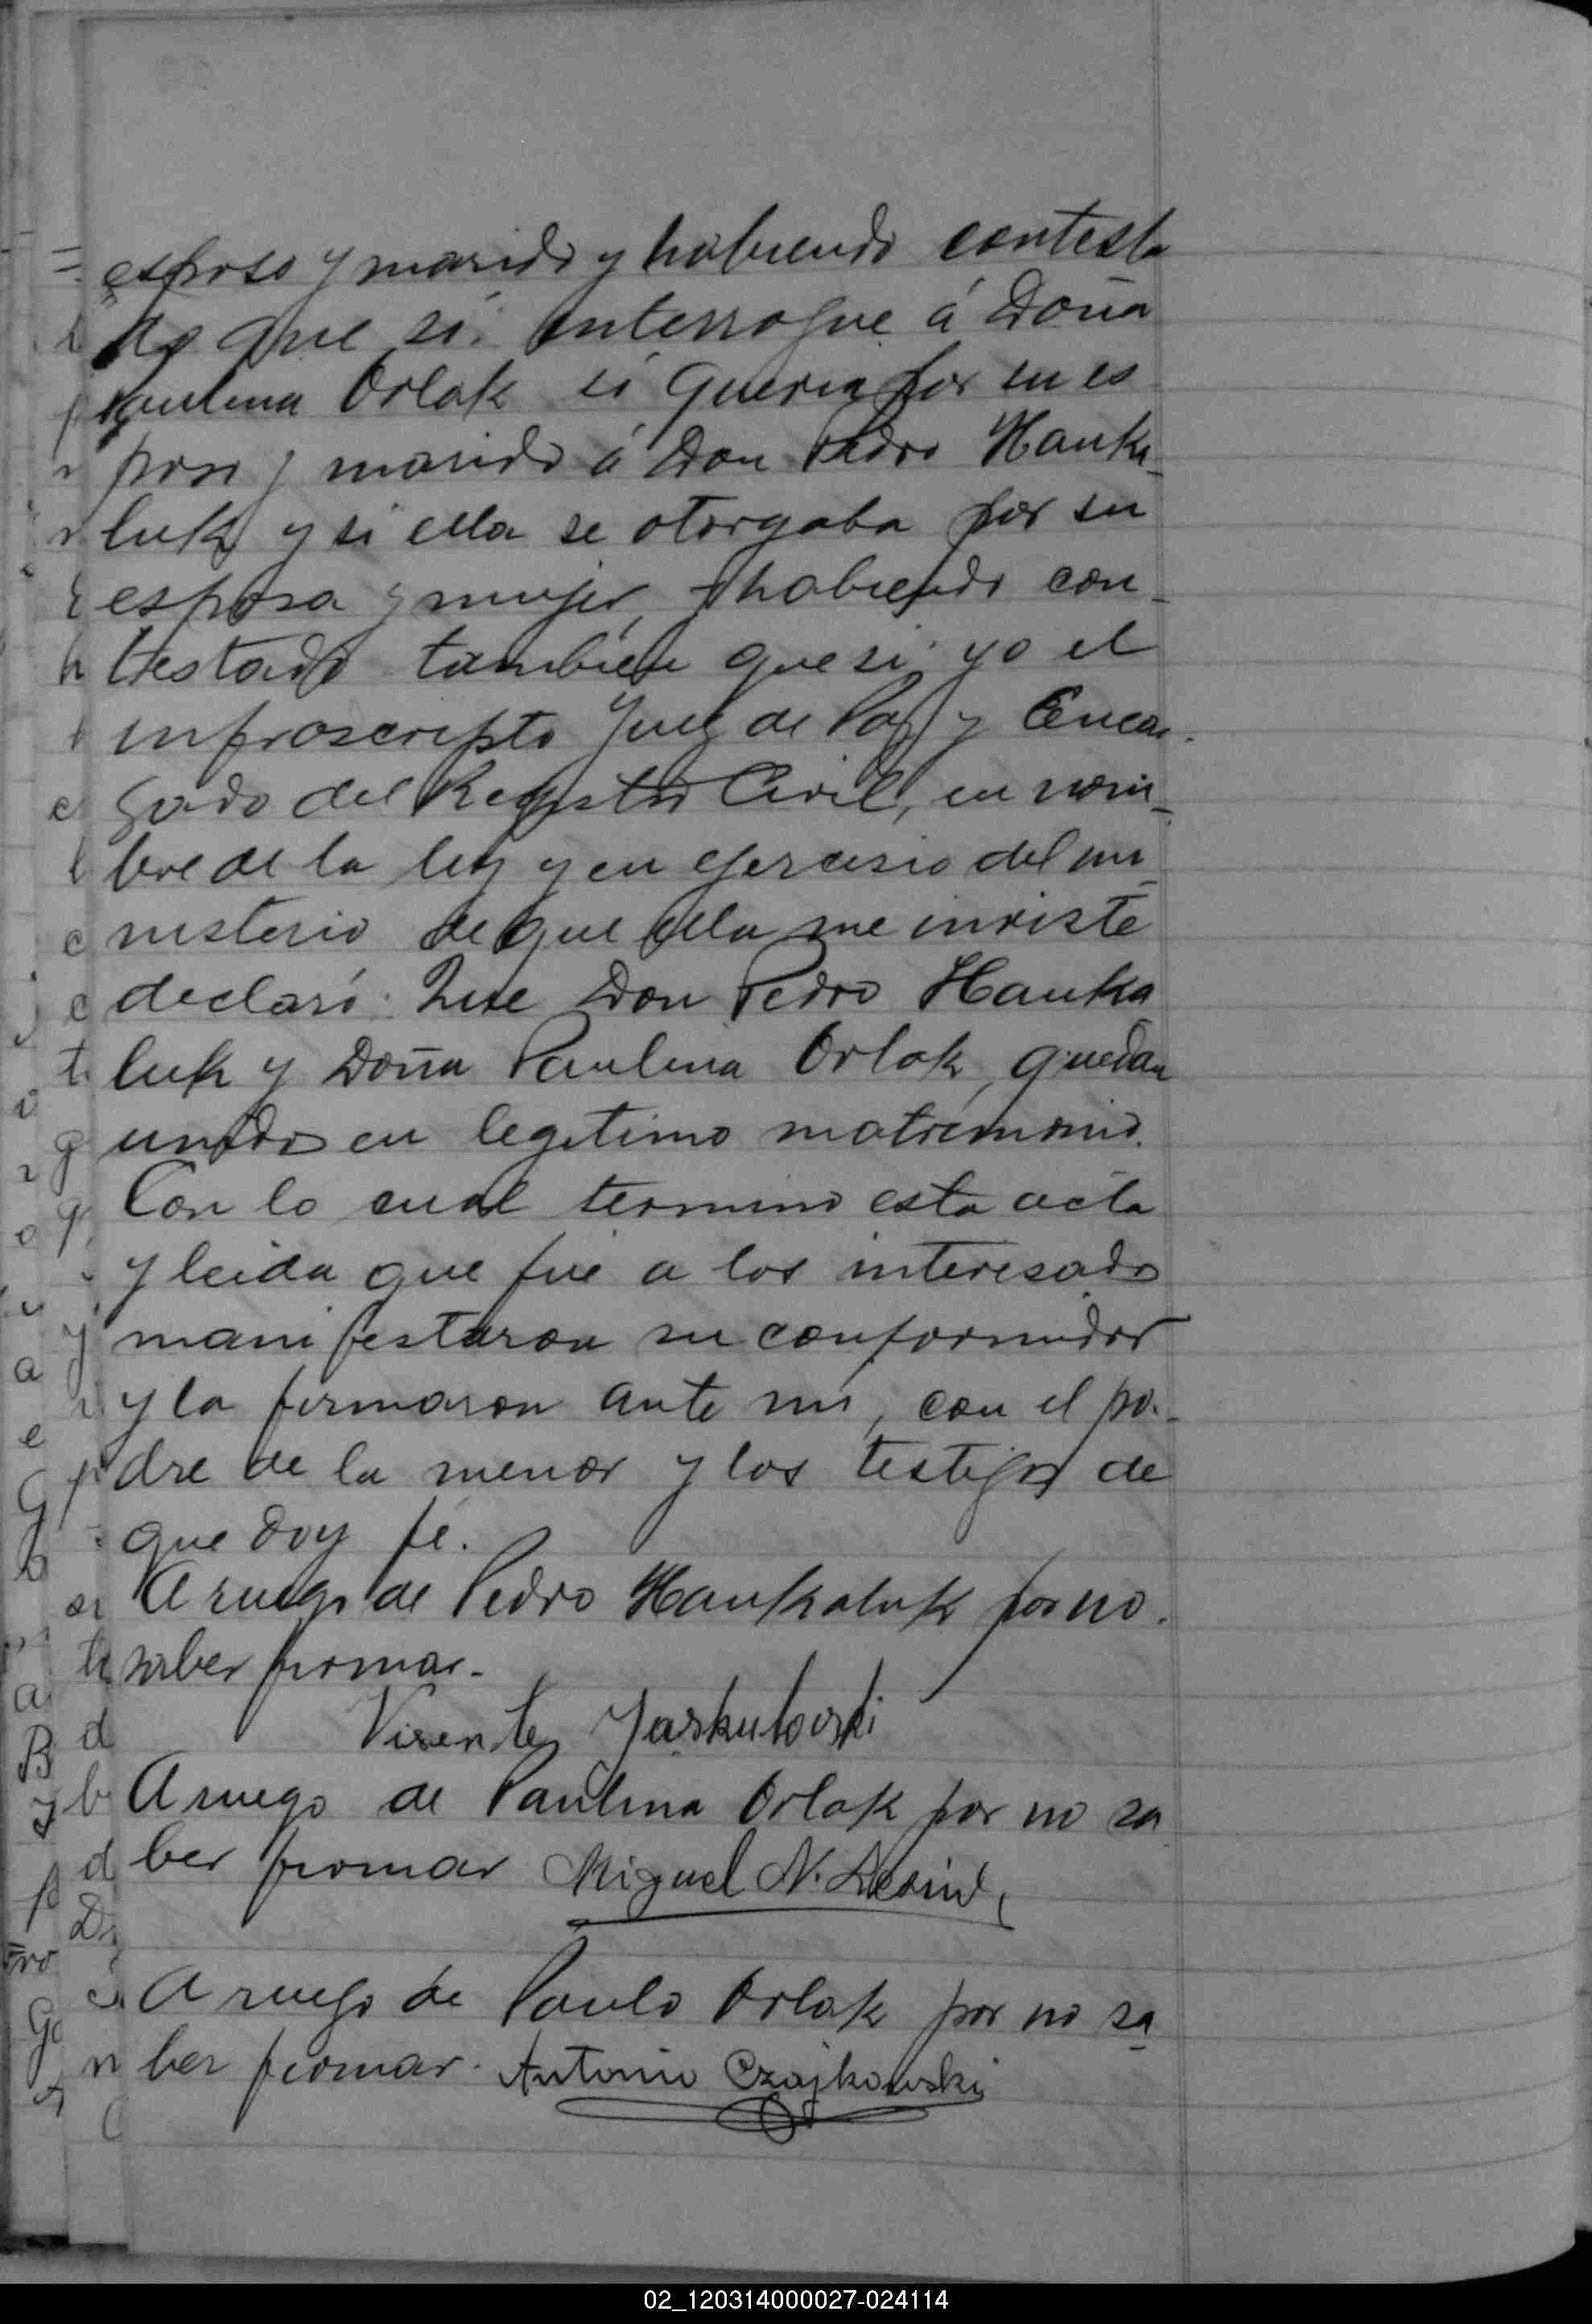 esposo y marido y habiendo contesta
do que si: interrogue á Doña
Paulina Orlak si queria por su es
poso y marido á Don Pedro Hanka-
luk y si ella se otorgaba por su
esposa y mujer, y habiendo con-
testado tambien que si, yo el
infrascripto Juez de Paz y Encar-
gado del Registro Civil, en nom-
bre de la ley y en ejercisio del mi-
nisterio de que ella me inviste
declaró: Que Don Pedro Hanka
luk y Doña Paulina Orlak, quedan
unidos en legitimo matrimonio.
Con lo cual termino esta acta
y leida que fue a los interesados
manifestaron su conformidad
y la firmaron ante mi, con el pa-
dre de la menor y los testigos de
que doy fé.
A ruego de Pedro Hankaluk por no
saber firmar.-
Visente Jaskulovski
A ruego de Paulina Orlak por no sa
ber firmar Miguel N.
A ruego de Paulo Orlak por no sa
ber firmar. Antonio Czajkowski
02_120314000027-024114